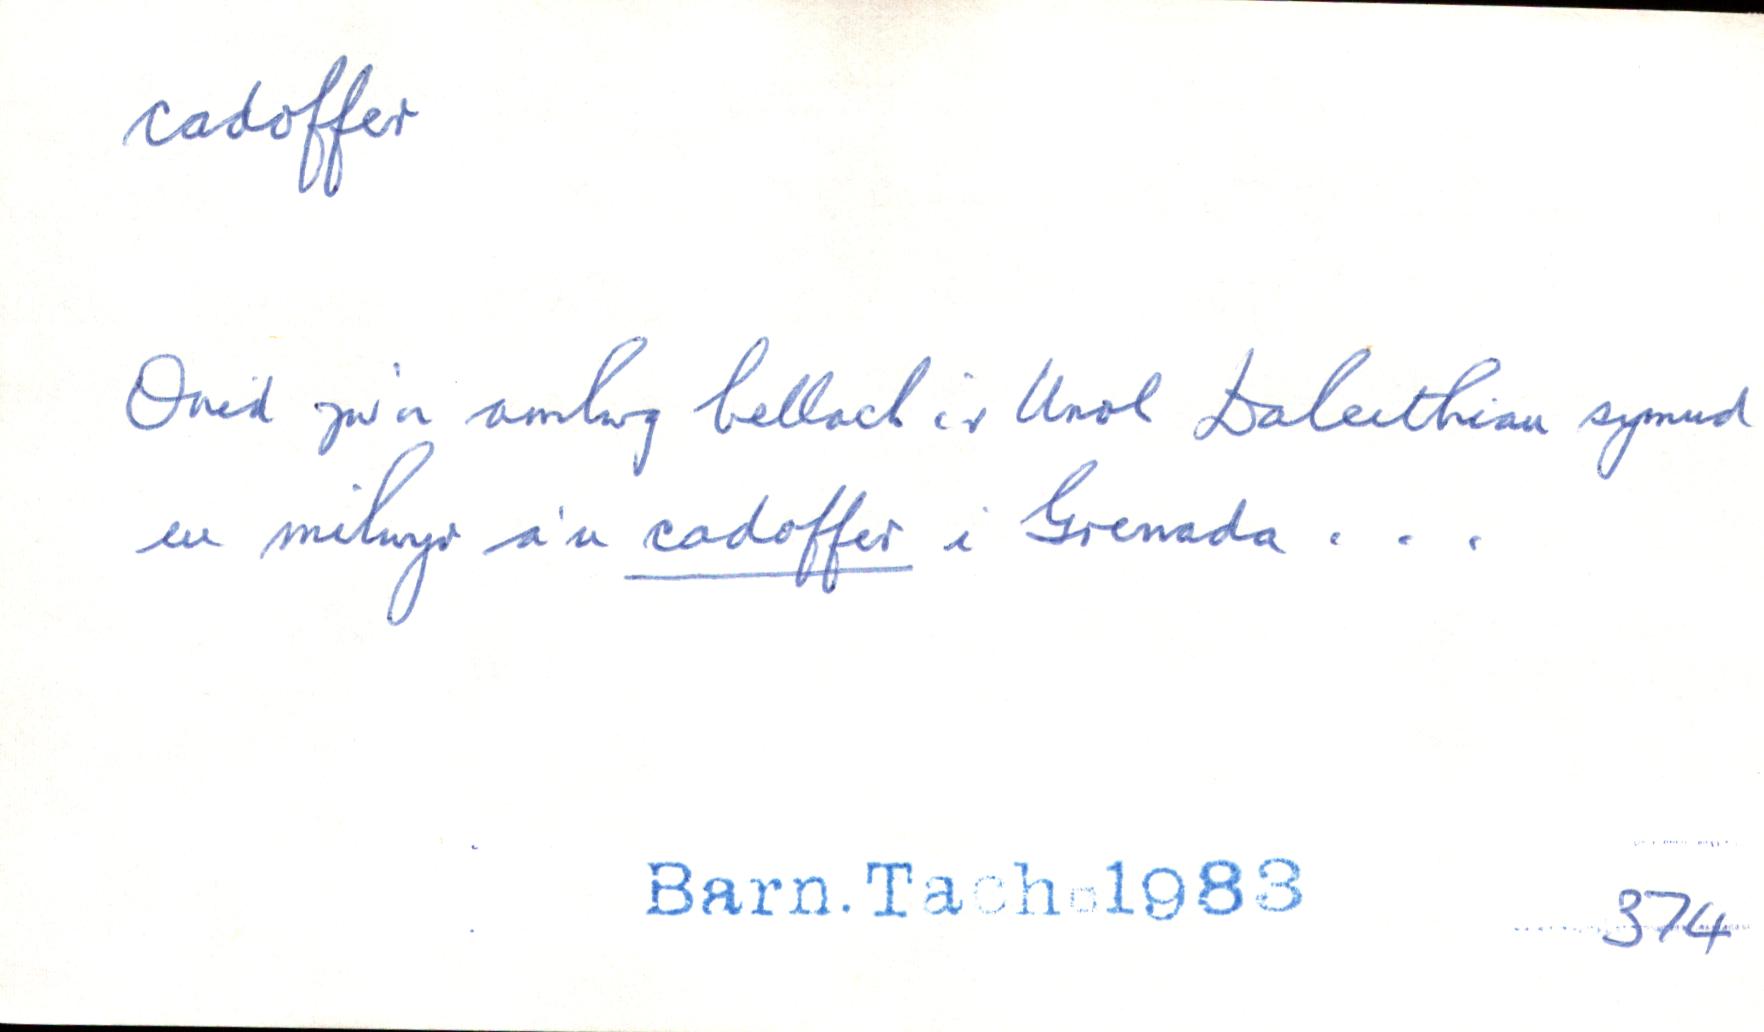 cadoffer
Onid yw'n amlwg bellach i'r Unol Daleithiau symud
eu milwyr a'u cadoffer i Grenada . . .
Barn. Tach. 1983
374